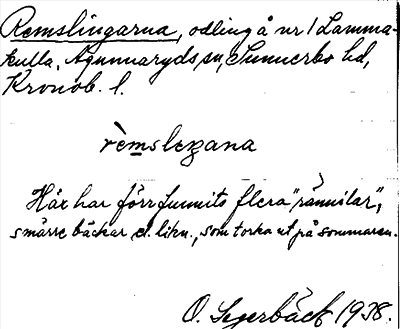 Remslingarna, odling å nr 1 Lamma-
kulla, Agunnaryds sn, Sunnerbo hd,
Kronob. l.
rèmslezana
Här har förr funnits flera "rännilar",
smärre bäckar el. likn., som torka ut på sommaren.
O. Segerbäck 1938.